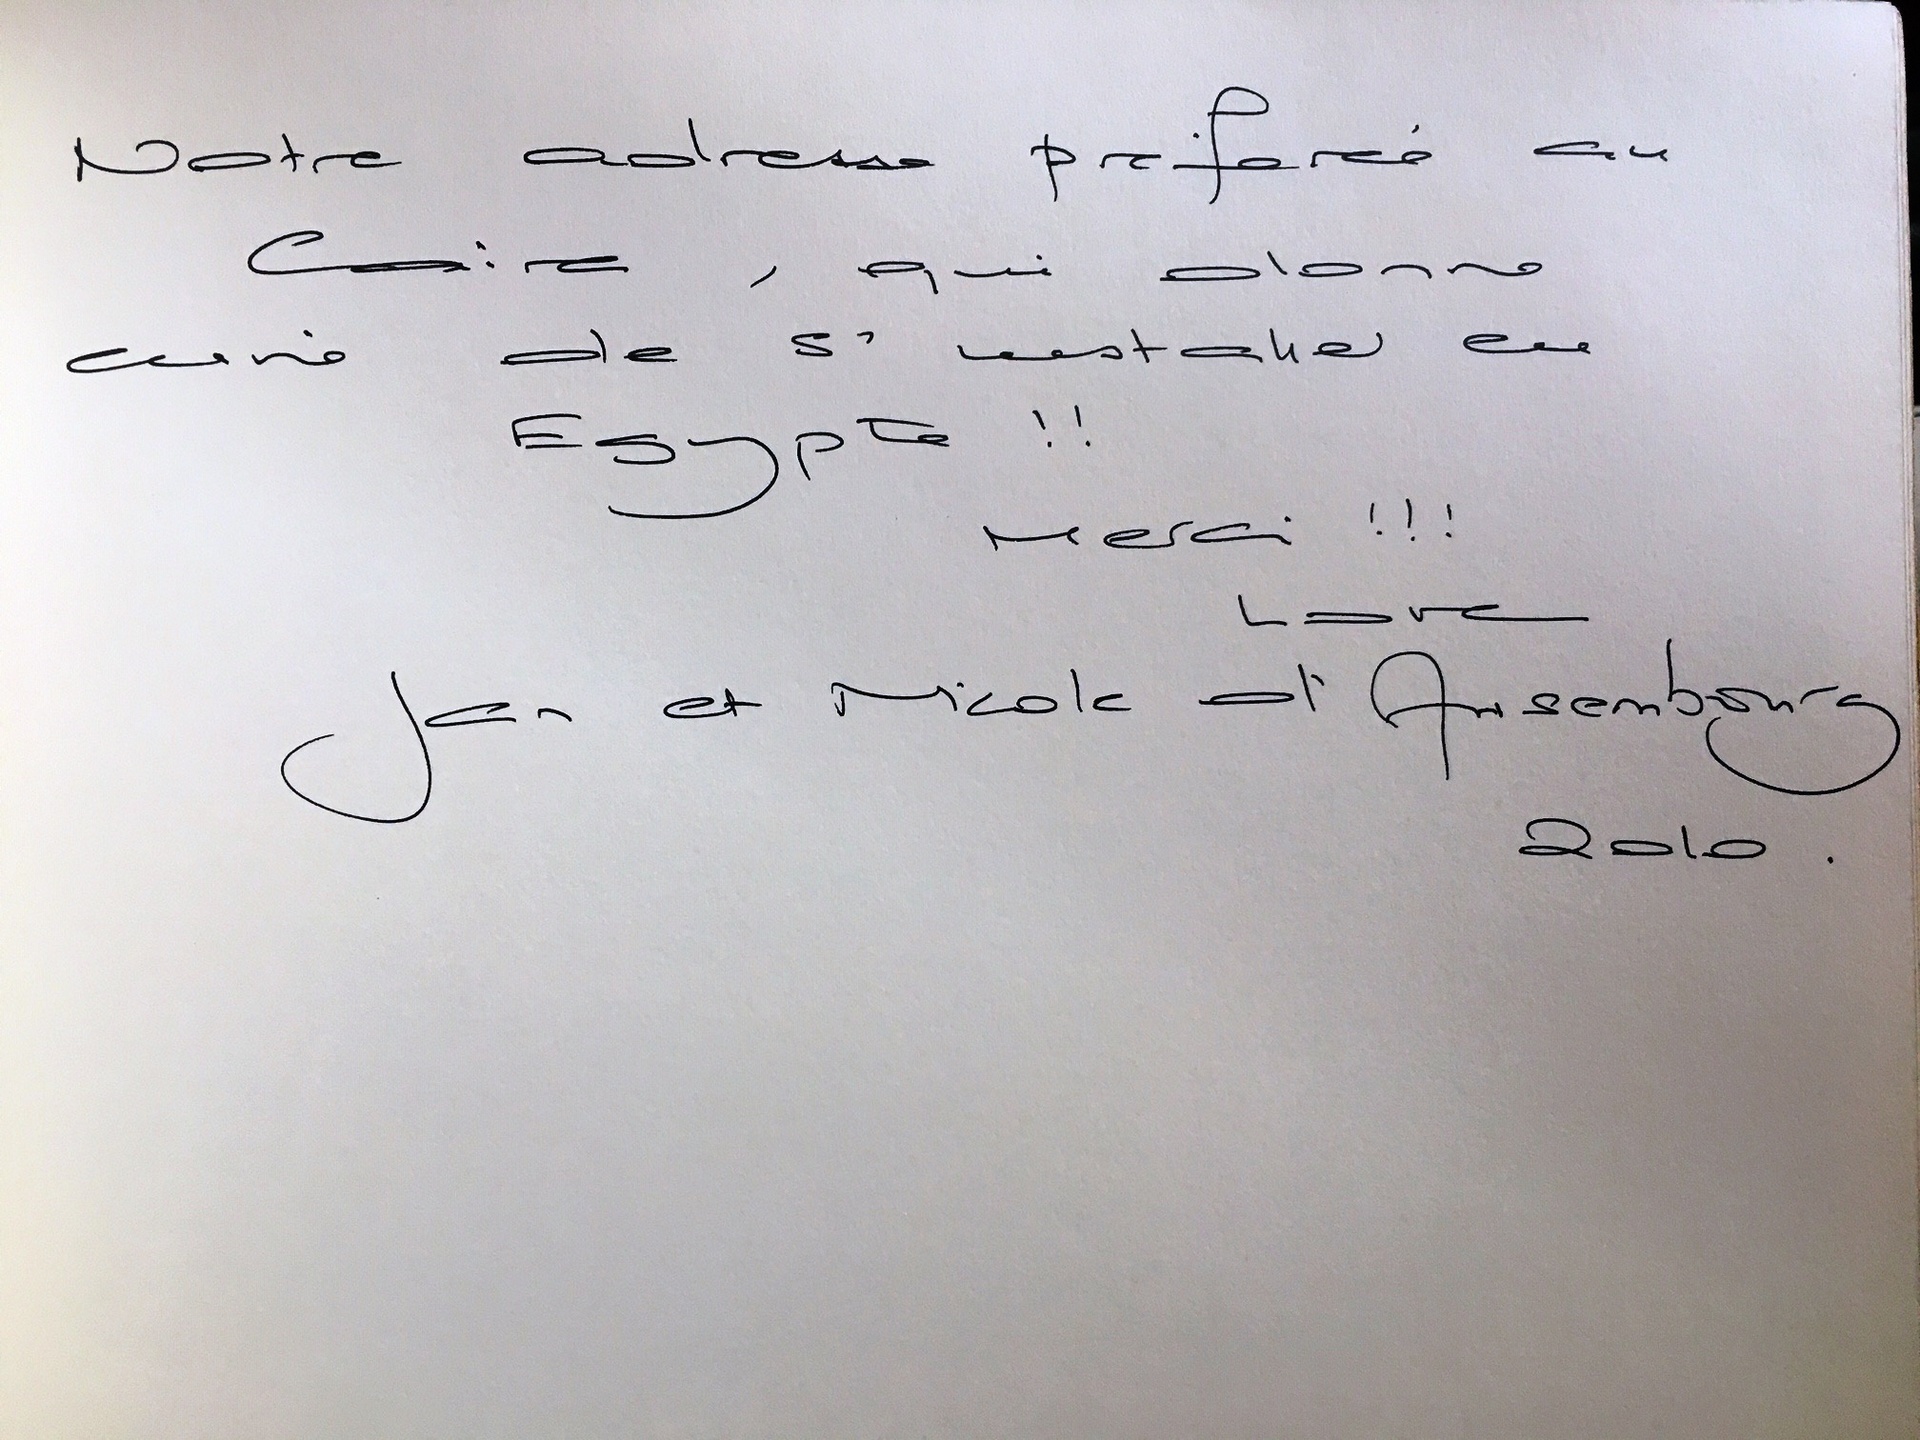 Notre adresse préferée au
Caire, qui donne
envie de s'installer en
Egypte !!
Merci !!!
Love
Jan et Nicole d'Ansembourg
2010.